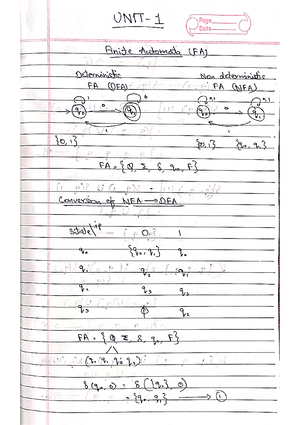 UNIT-1
Page
Date
Finite Automata (FA)
Deterministic Non deterministic
FA (DFA) FA (NFA)
{0,1} {0,1} {q₀, q₁}
FA = {Q, Σ, δ, q₀, F}
Conversion of NFA → DFA
state\ip 0 1
q₀ {q₀, q₁} q₀
q₁ q₂ q₁
q₂ q₃ q₃
q₃ ϕ q₂
FA = {Q, Σ, δ, q₀, F}
(q₀ q₁ q₂ q₃)
δ(q₀, 0) = δ({q₁}, 0)
= {q₀, q₁} → ①